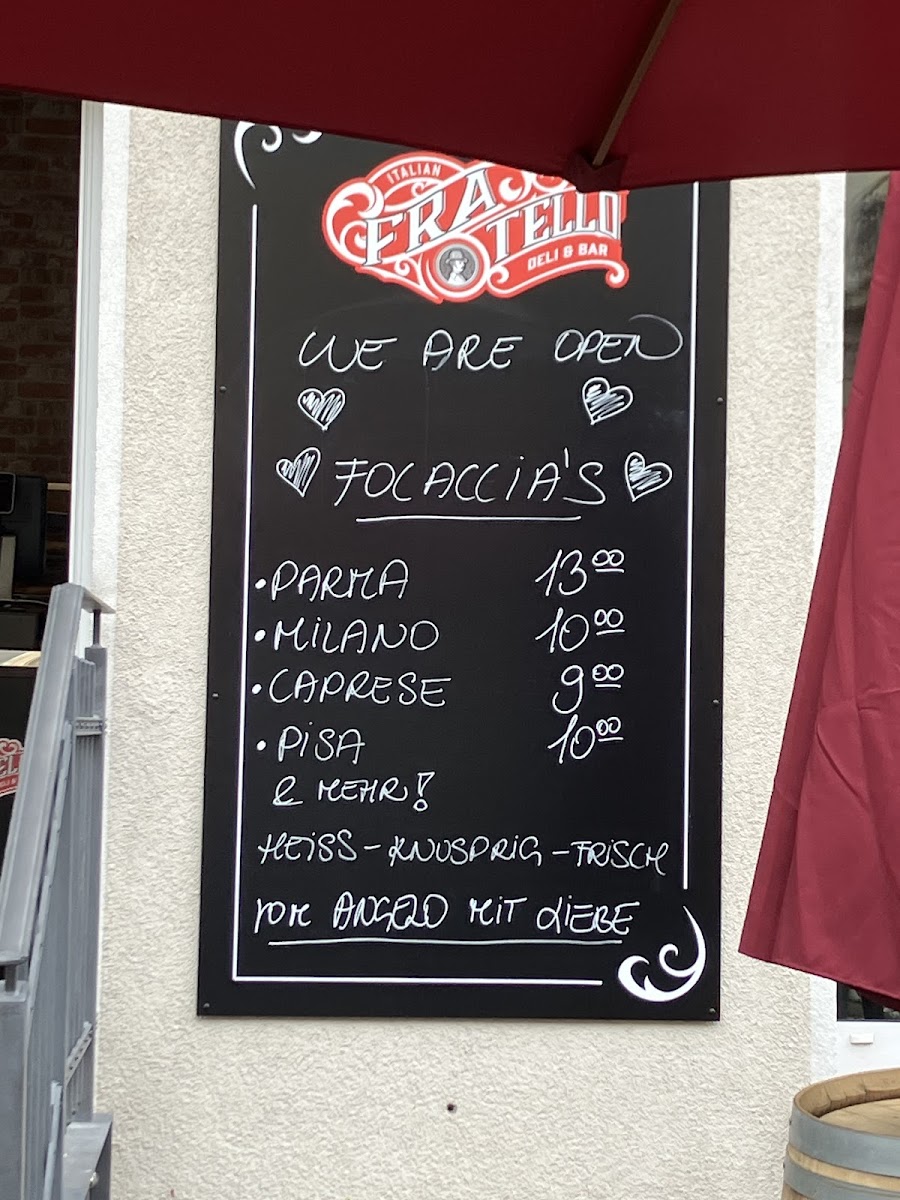 ITALIAN
FRA
TELLO
DELI & BAR
WE ARE OPEN
FOCACCIA'S
• PARMA 13⁰⁰
• MILANO 10⁰⁰
• CAPRESE 9⁰⁰
• PISA 10⁰⁰
& MEHR!
HEISS - KNUSPRIG - FRISCH
VOM ANGELO MIT LIEBE